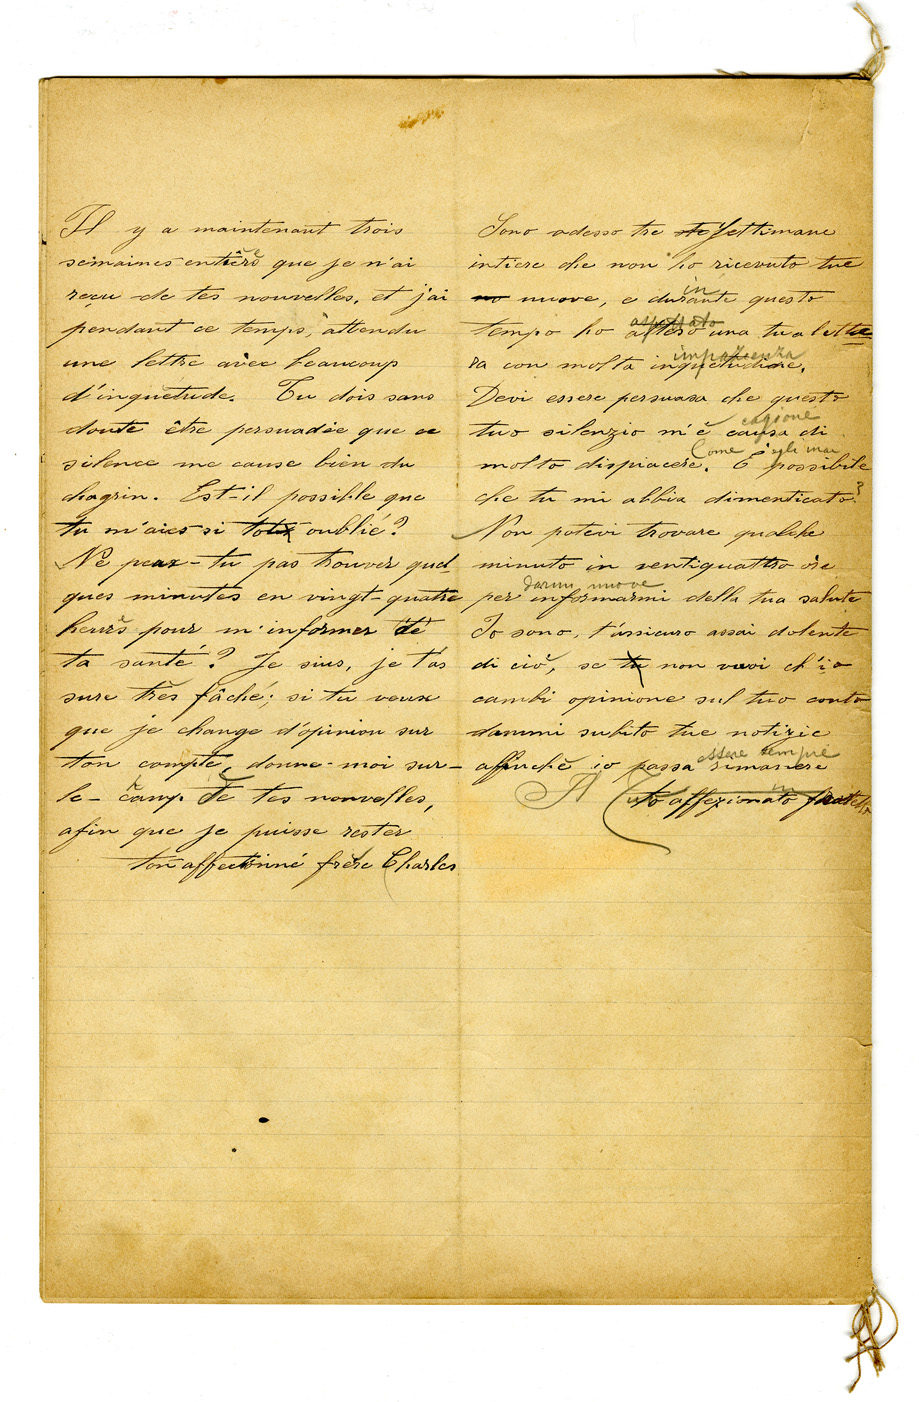 Il y a maintenant trois
semaines entières que je n'ai
reçu de tes nouvelles, et j'ai
pendant ce temps, attendu
une lettre avec beaucoup
d'inquetude. Tu dois sans
doute être persuadée que ce
silence me cause bien du
chagrin. Est-il possible que
tu m'aies si tots oublié?
Ne peux-tu pas trouver quel-
ques minutes en vingt-quatre
heures pour m'informer de
ta santé? Je suis, je t'as
sure très fâché; si tu veux
que je change d'opinion sur
ton compte, donne-moi sur-
le-camp de tes nouvelles,
afin que je puisse rester
ton affectionné frère Charles
Sono adesso tre settimane
intiere che non ho ricevuto tue
in
no nuove, e durante questo
aspettato
tempo ho atteso una tua lette
impazienza
ra con molta inquetudine.
Devi essere persuasa che questo
cagione
tuo silenzio m'è causa di
Come egli mai
molto dispiacere. E possibile
che tu mi abbia dimenticato?
Non potevi trovare qualche
minuto in ventiquattro ore
darmi nuove
per informarmi della tua salute
Io sono, t'assicuro assai dolente
di ciò, se tu non vuoi ch'io
cambi opinione sul tuo conto
dammi subito tue notizie
essere sempre
affinchè io possa rimanere
Il tuo affezionato fratello